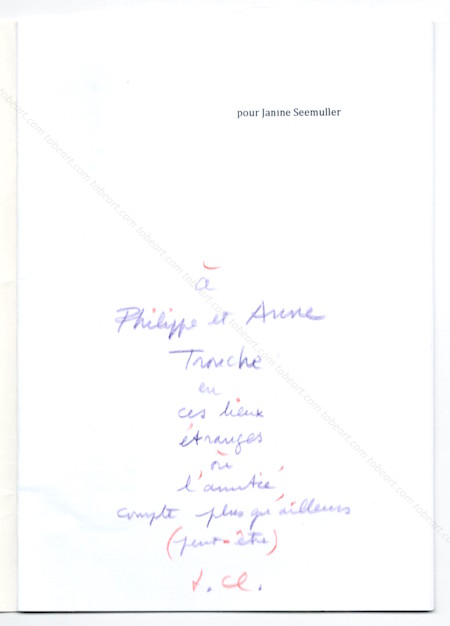 pour Janine Seemuller
à
Philippe et Anne
Tronche
en
ces lieux
étranges
où
l'amitié
compte plus qu'ailleurs
(peut-être)
tobeart.com tobeart.com tobeart.com tobeart.com tobeart.com tobeart.com tobeart.com tobeart.com tobeart.com